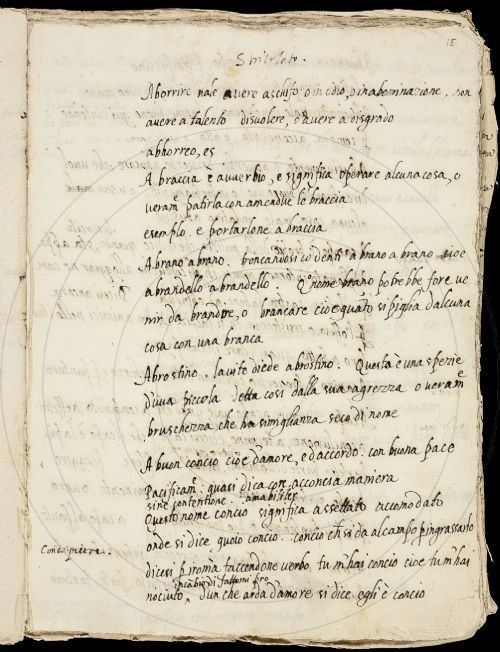 15
Aborrire vale avere aschifo o in odio, o in abominazione, non
avere a talento disvolere, o avere a disgrado
abhorreo, es
A braccia è avverbio, e significa operare alcuna cosa, o
veram.e patirla con amendue le braccia
esemplo è portarlone a braccia
A brano a brano. troncandosi co denti a brano a brano cioè
a brandello a brandello. Q.o nome brano potrebbe fore ve
nir da brandire, o brancare cioè quãto si piglia dalcuna
cosa con una branca
Abrostino. la vite diede abrostino. Questa è una spezie
d'uva piccola detta così dalla sua agrezza o veram.e
bruschezza che ha simiglianza seco di nome
A buon concio cioè d'amore, e d'accordo. con buona pace
Pacificam.e quasi dica con acconcia maniera
sine contentione. amabiliter
Questo nome concio significa assettato accomodato
onde si dice quoio concio. concio ch si da al campo p ingrassarlo
Concopietre.
dicesi p ironia faccendone verbo tu m'hai concio cioè tu m'hai
in cãbio di fattomi pro
nociuto. D'un che arda d'amore si dice egli è concio